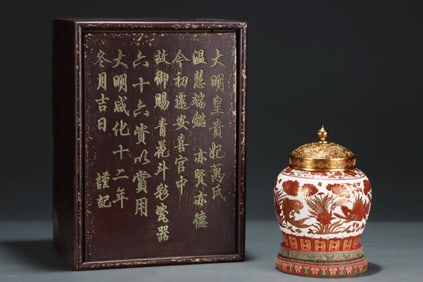 大明皇貴妃萬氏
温慧端懿 亦賢亦德
今初遷安喜宮中
故御賜青花斗彩瓷器
六十六賞以賞用
大明成化十二年
冬月吉日 謹記